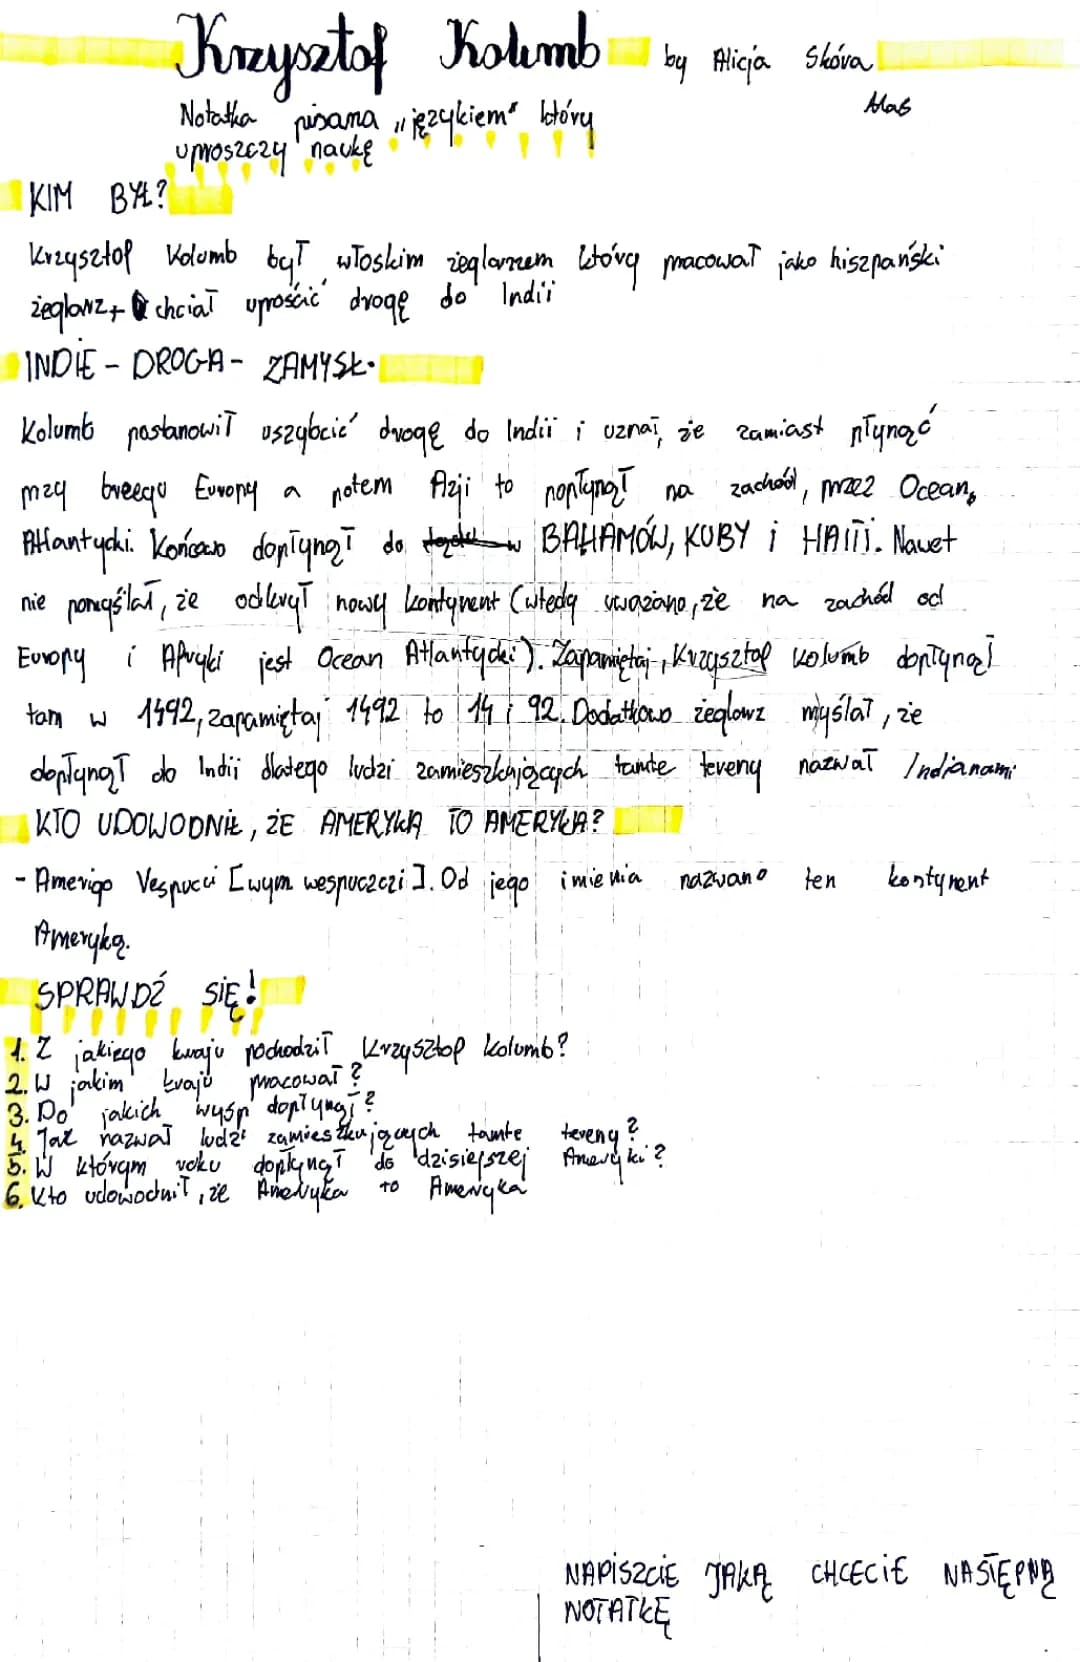 Krzysztof Kolumb by Alicja Skóra
Notatka pisana „językiem" który
uproszczy naukę
KIM BYŁ?
Krzysztof Kolumb był włoskim żeglarzem który pracował jako hiszpański
żeglarz+ chciał uprościć drogę do Indii
INDIE - DROGA - ZAMYSŁ.
Kolumb postanowił uszybcić drogę do Indii i uznał, że zamiast płynąć
przy breegu Europy a potem Azji to popłynął na zachód, przez Ocean
Atlantycki. Końcowo dopłynął do BAHAMÓW, KUBY i HAITI. Nawet
nie pomyślał, że odkrył nowy kontynent (wtedy uważano, że na zachód od
Europy i Afryki jest Ocean Atlantycki). Zapamiętaj, Krzysztof Kolumb dopłynął
tam w 1492, zapamiętaj 1492 to 14 i 92. Dodatkowo żeglarz myślał, że
dopłynął do Indii dlatego ludzi zamieszkających tamte tereny nazwał Indianami
KTO UDOWODNIŁ, ŻE AMERYKA TO AMERYKA?
- Amerigo Vespucci [wym wespuczczi]. Od jego imienia nazwano ten kontynent
Ameryką.
SPRAWDŹ SIĘ!
1. Z jakiego kraju pochodził Krzysztof Kolumb?
2. W jakim kraju pracował?
3. Do jakich wysp dopłynął?
4. Jak nazwał ludzi zamieszkujących tamte tereny?
5. W którym roku dopłynął do dzisiejszej Ameryki?
6. Kto udowodnił, że Ameryka to Ameryka
NAPISZCIE JAKĄ CHCECIE NASTĘPNĄ
NOTATKĘ